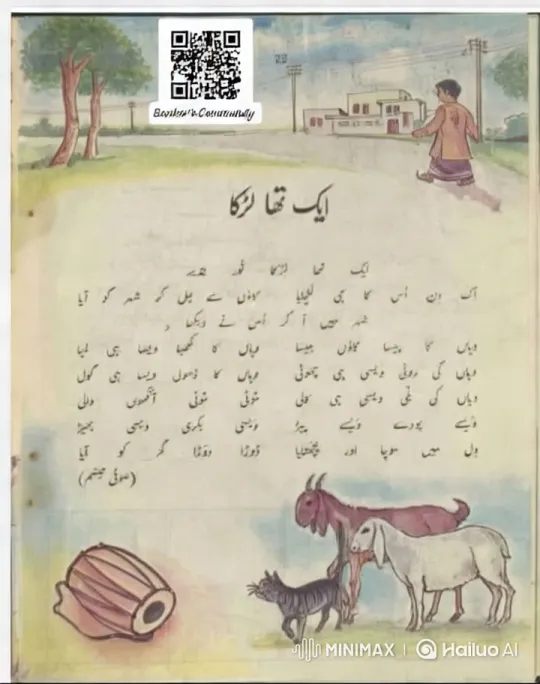 Booker's Community
ایک تھا لڑکا
ایک تھا لڑکا
اک دن اُس کا جی للچایا گاؤں سے چل کر شہر کو آیا
شہر میں آ کر اُس نے دیکھا
وہاں کا پیسا گاؤں جیسا وہاں کا کھمبا ویسا ہی لمبا
وہاں کی روٹی ویسی ہی چھوٹی وہاں کا ڈھول ویسا ہی گول
وہاں کی بلّی ویسی ہی کالی موٹی موٹی آنکھوں والی
ویسے پودے ویسے پیڑ ویسی بکری ویسی بھیڑ
دل میں سوچا اور پچھتایا دوڑا دوڑا گھر کو آیا
(صوفی تبسّم)
MINIMAX | Hailuo AI